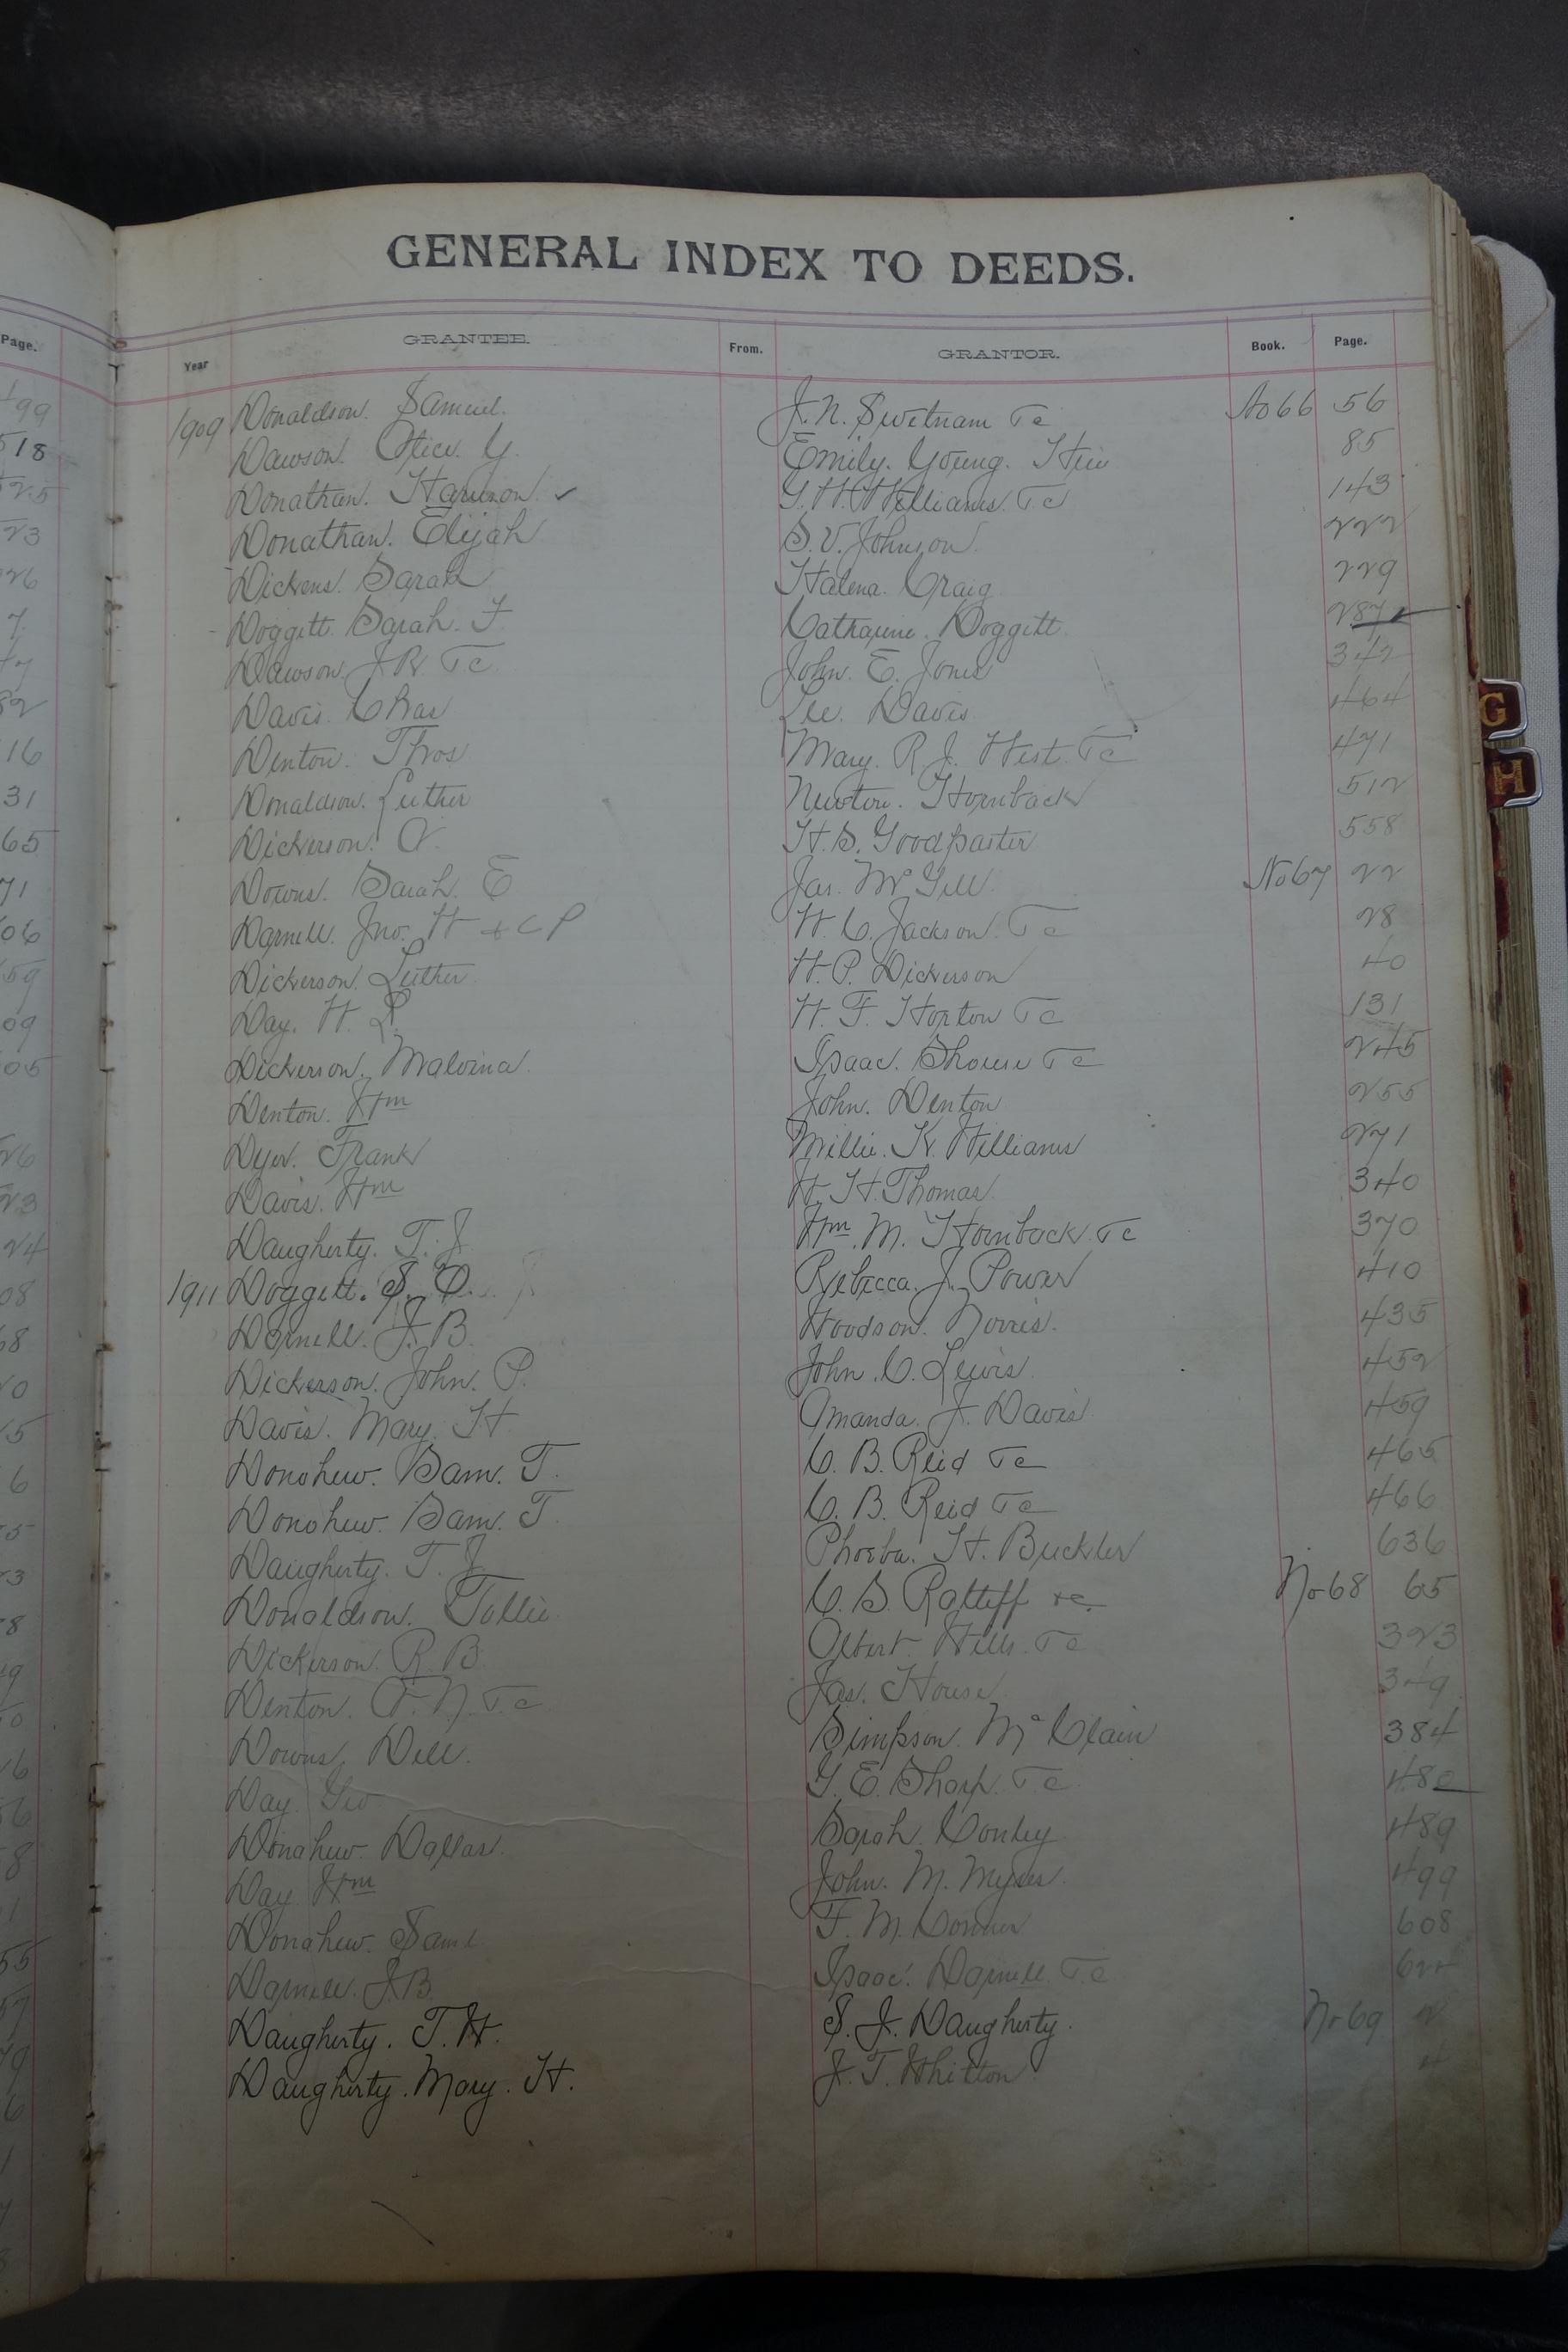 GENERAL INDEX TO DEEDS.
Page. Year GRANTEE. From. GRANTOR. Book. Page.
1909 Donaldson. Samuel. J. N. Swetnam &c No 66 56
Dawson. Alice. Y. Emily. Young. Heir 85
Donathan. Harmon. ✓ G. W. Williams. &c 143
Donathan. Elijah S. V. Johnson 222
Dickens. Sarah Halena. Craig 229
Doggett. Sarah. F. Catharine. Doggett. 287
Dawson. J. R. &c John. E. Jones 342
Davis. Chas Lee. Davis 464
Denton. Thos Mary. R. J. West. &c 471
Donaldson. Luther Newton. Hornback 512
Dickerson. A. H. S. Goodpaster 558
Downs. Sarah. E Jas. McGill No 67 22
Darnell. Jno. W & C P W. C. Jackson. &c 28
Dickerson. Luther. W. P. Dickerson 40
Day. W. L. W. F. Horton &c 131
Dickerson. Malvina. Isaac. Shouse &c 245
Denton. Wm John. Denton 255
Dyer. Frank Millie. K. Williams 271
Davis. Wm W. H. Thomas. 340
Daugherty. T. J. Wm. M. Hornback. &c 370
1911 Doggett. S. D. Rebecca. J. Power 410
Darnell. J. B. Woodson. Norris. 435
Dickerson. John. P. John. C. Lewis 452
Davis. Mary. H. Amanda. J. Davis 459
Donohew. Sam. T. C. B. Reid &c 465
Donohew. Sam. T. C. B. Reid &c 466
Daugherty. T. J. Phoeba. H. Buckler 636
Donaldson. Tollie C. S. Ratliff &c. No 68 65
Dickerson. R. B. Albert. Wills. &c 323
Denton. A. N. &c Jas. House 349
Downs. Dell. Simpson. McClain 384
Day. Geo G. E. Sharp. &c 480
Donahew. Dallas. Sarah. Conley 489
Day Wm John. M. Myers. 499
Donahew. Saml F. M. Conner 608
Darnell. J. B. Isaac. Darnell. &c
Daugherty. T. W. S. J. Daugherty. No 69 2
Daugherty. Mary. H. J. T. Whitton 4
G
H